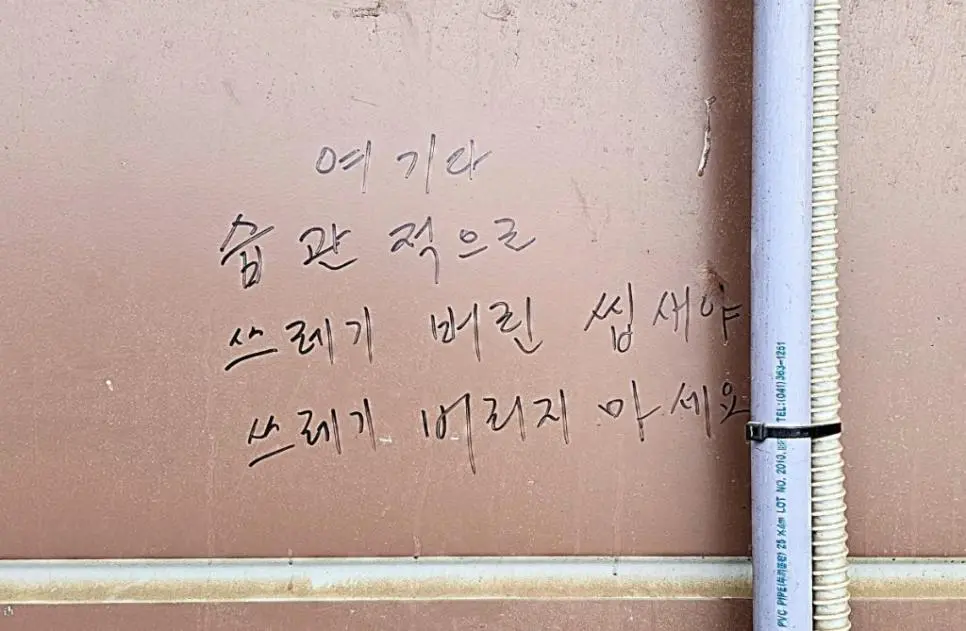 여기다
습관적으로
쓰레기 버린 씹새야
쓰레기 버리지 마세요
PVC PIPE 25 X4m LOT NO. 2010. TEL:(041)363-1251